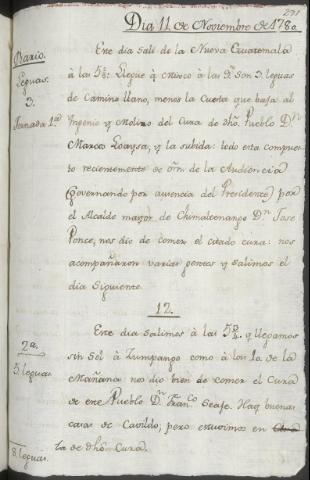 271
Dia 11 de Noviembre de 1780
Diario.
Leguas.
3.
Jornada 1ª
Este dia sali de la Nueva Guatemala
à las 5¾: llegue à Mixco à las 9. son 3. leguas
de Camino llano, menos la Cuesta que baja al
Ingenio y Molino del Cura de dho. Pueblo Dn.
Marcos Loaysa, y la subida: todo esta compues
to recientemente de orn. de la Audiencia
(governando por ausencia del Presidente) por
el Alcalde mayor de Chimaltenango Dn. Jose
Ponce, nos dio de comer el citado cura: nos
acompañaron varias gentes y salimos el
dia siguiente.
12.
2ª
5. leguas
Este dia salimos à las 5¾. y llegamos
sin sol à Zumpango como à las 10. de la
Mañana nos dio bien de comer el Cura
de este Pueblo Dn. Franco.
Hay buenas
casas de Cavildo, pero estuvimos en
la de dho. Cura.
8. leguas.